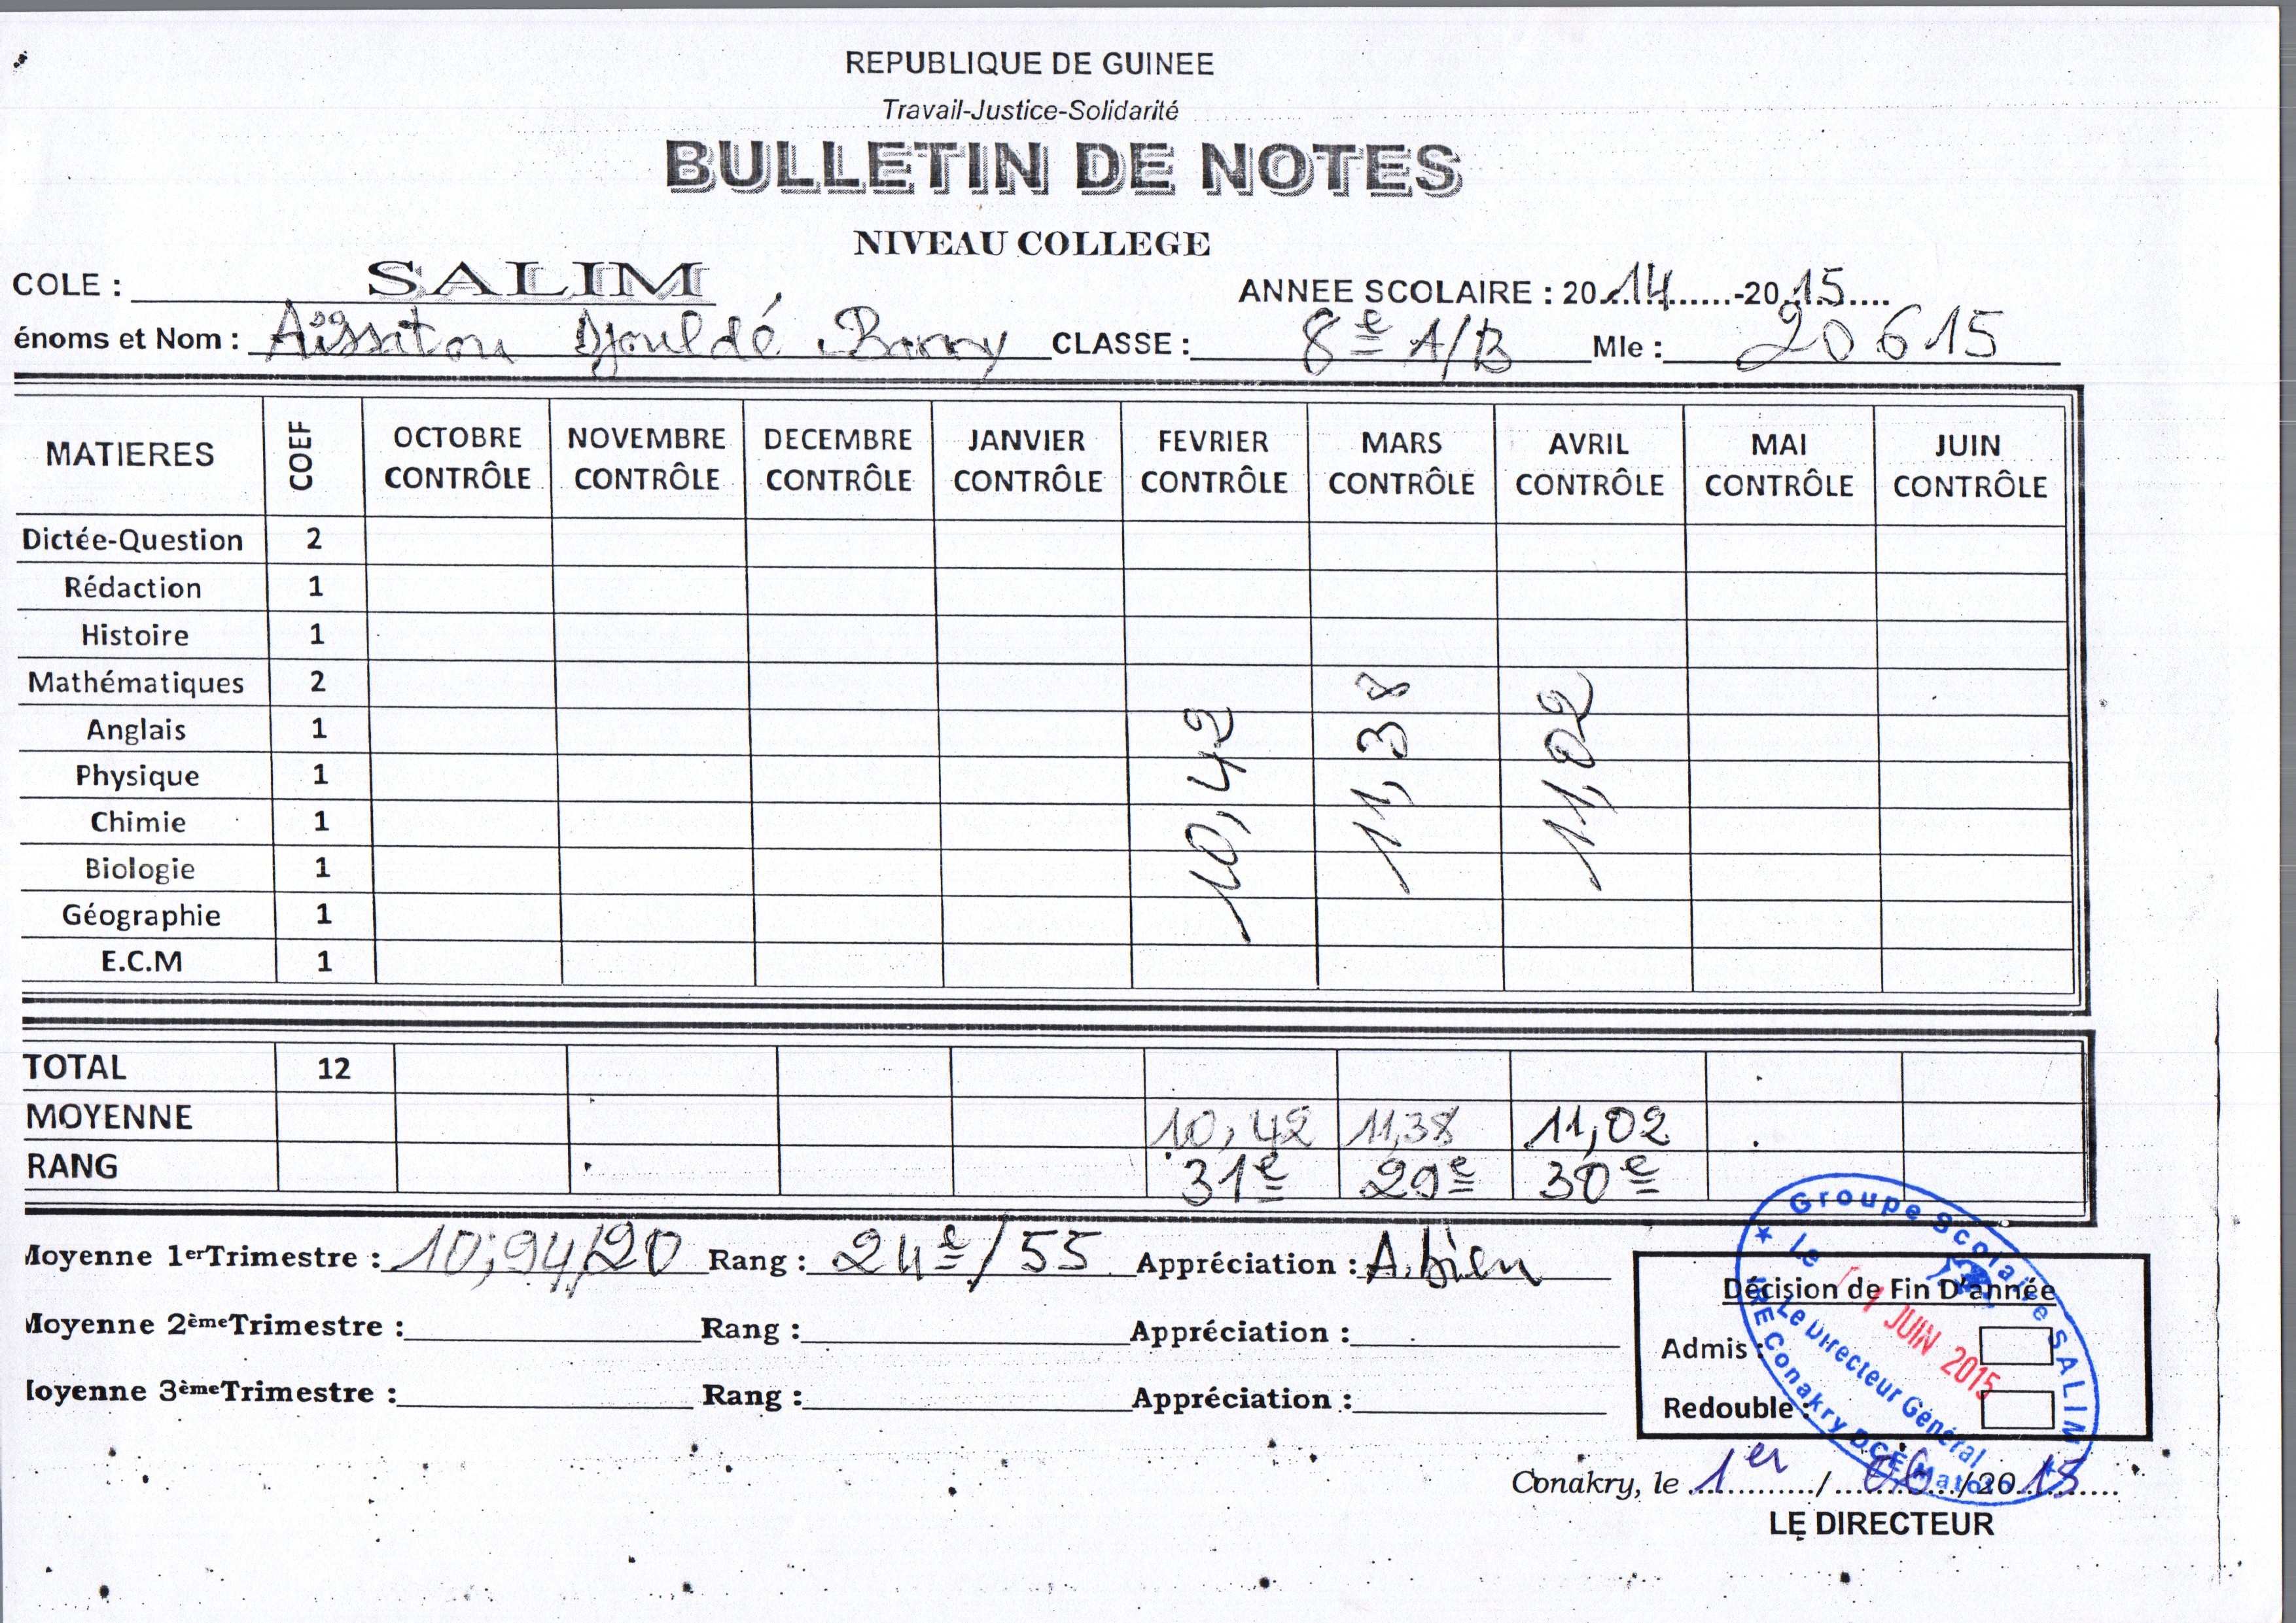 REPUBLIQUE DE GUINEE
Travail-Justice-Solidarité
BULLETIN DE NOTES
NIVEAU COLLEGE
COLE : SALIM ANNEE SCOLAIRE : 2014-2015
énoms et Nom : Aïssatou Djouldé Barry CLASSE : 8e A/B Mle : 20615
MATIERES COEF OCTOBRE CONTRÔLE NOVEMBRE CONTRÔLE DECEMBRE CONTRÔLE JANVIER CONTRÔLE FEVRIER CONTRÔLE MARS CONTRÔLE AVRIL CONTRÔLE MAI CONTRÔLE JUIN CONTRÔLE
Dictée-Question 2
Rédaction 1
Histoire 1
Mathématiques 2
Anglais 1
Physique 1
Chimie 1
Biologie 1
Géographie 1
E.C.M 1
10,42 11,38 11,02
TOTAL 12
MOYENNE 10,42 11,38 11,02
RANG 31e 29e 30e
Moyenne 1erTrimestre : 10,94/20 Rang : 24e/55 Appréciation : A.bien
Moyenne 2èmeTrimestre : Rang : Appréciation :
oyenne 3èmeTrimestre : Rang : Appréciation :
Décision de Fin D'année
Admis :
Redouble :
Groupe Scolaire SALIM
Le
1 JUIN 2015
Le Directeur Général
Conakry DCE Matoto
Conakry, le 1er / 06 /2015
LE DIRECTEUR